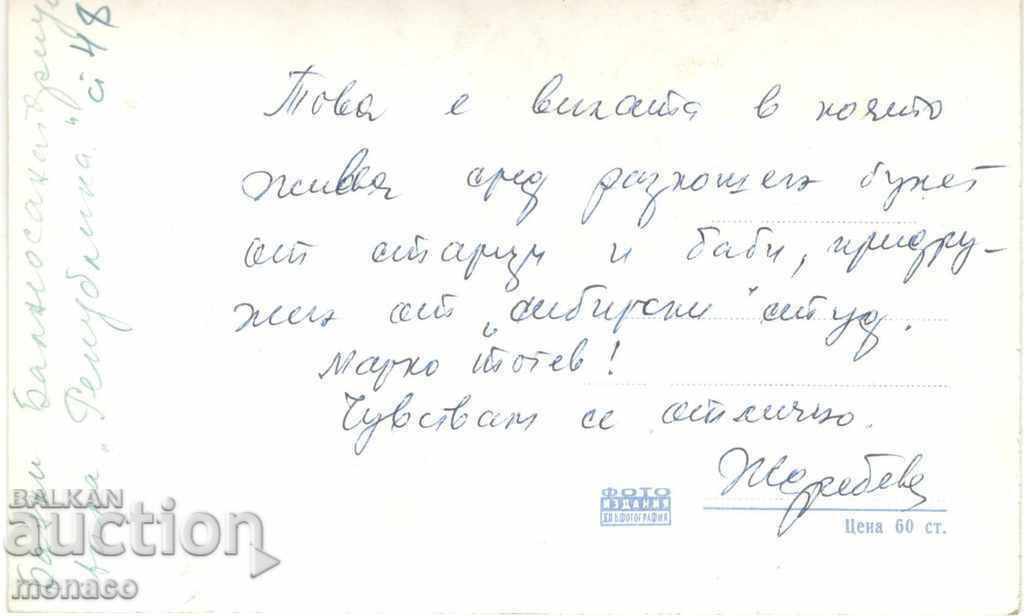 Това е вилата в която
живея сред разкошен букет
от старци и баби, придру-
жен от „сибирски" студ.
Марко Тотев!
Чувствам се отлично.
ФОТО
ИЗДАНИЯ
Цена 60 ст.
Балнеосанаториум
„Република" ст 48
BALKAN
auction
monaco